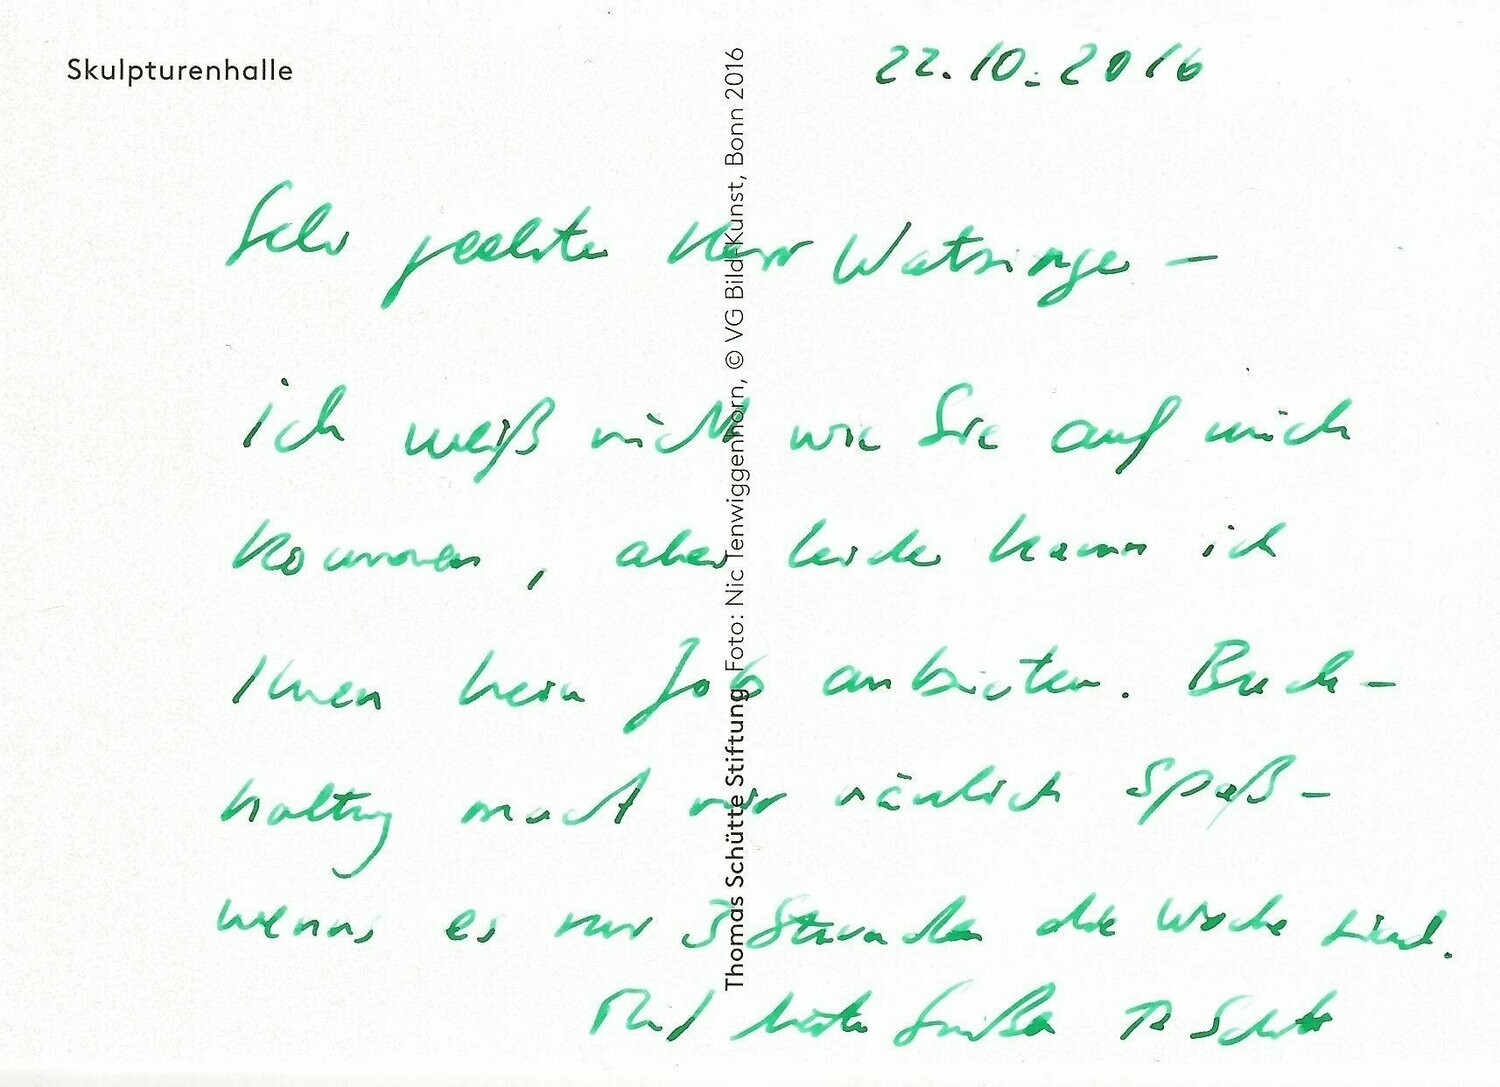 Skulpturenhalle
22.10.2016
Sehr geehrter Herr Watzinger –
ich weiß nicht wie Sie auf mich
kommen, aber leider kann ich
Ihnen kein Job anbieten. Buch-
haltung macht mir nämlich Spaß –
wenn es nur 3 Stunden die Woche sind.
Mit besten Grüßen Th Schütte
Thomas Schütte Stiftung Foto: Nic Tenwiggenhorn, © VG Bild-Kunst, Bonn 2016